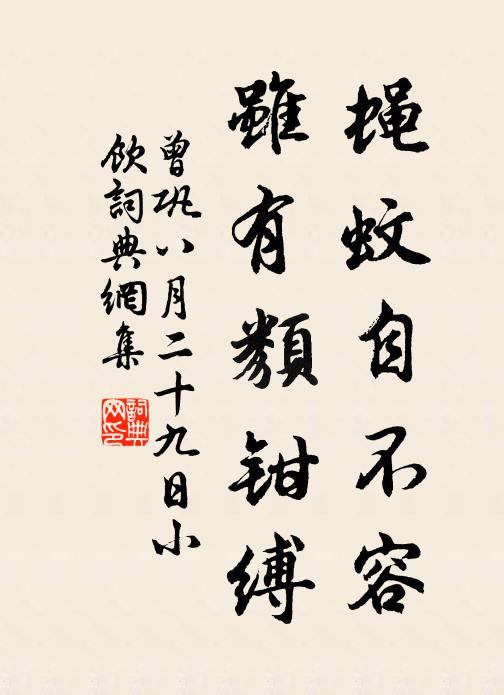 蝇蚊自不容
雖有類钳缚
曾巩八月二十九日小
饮詞典網集
詞典
网印